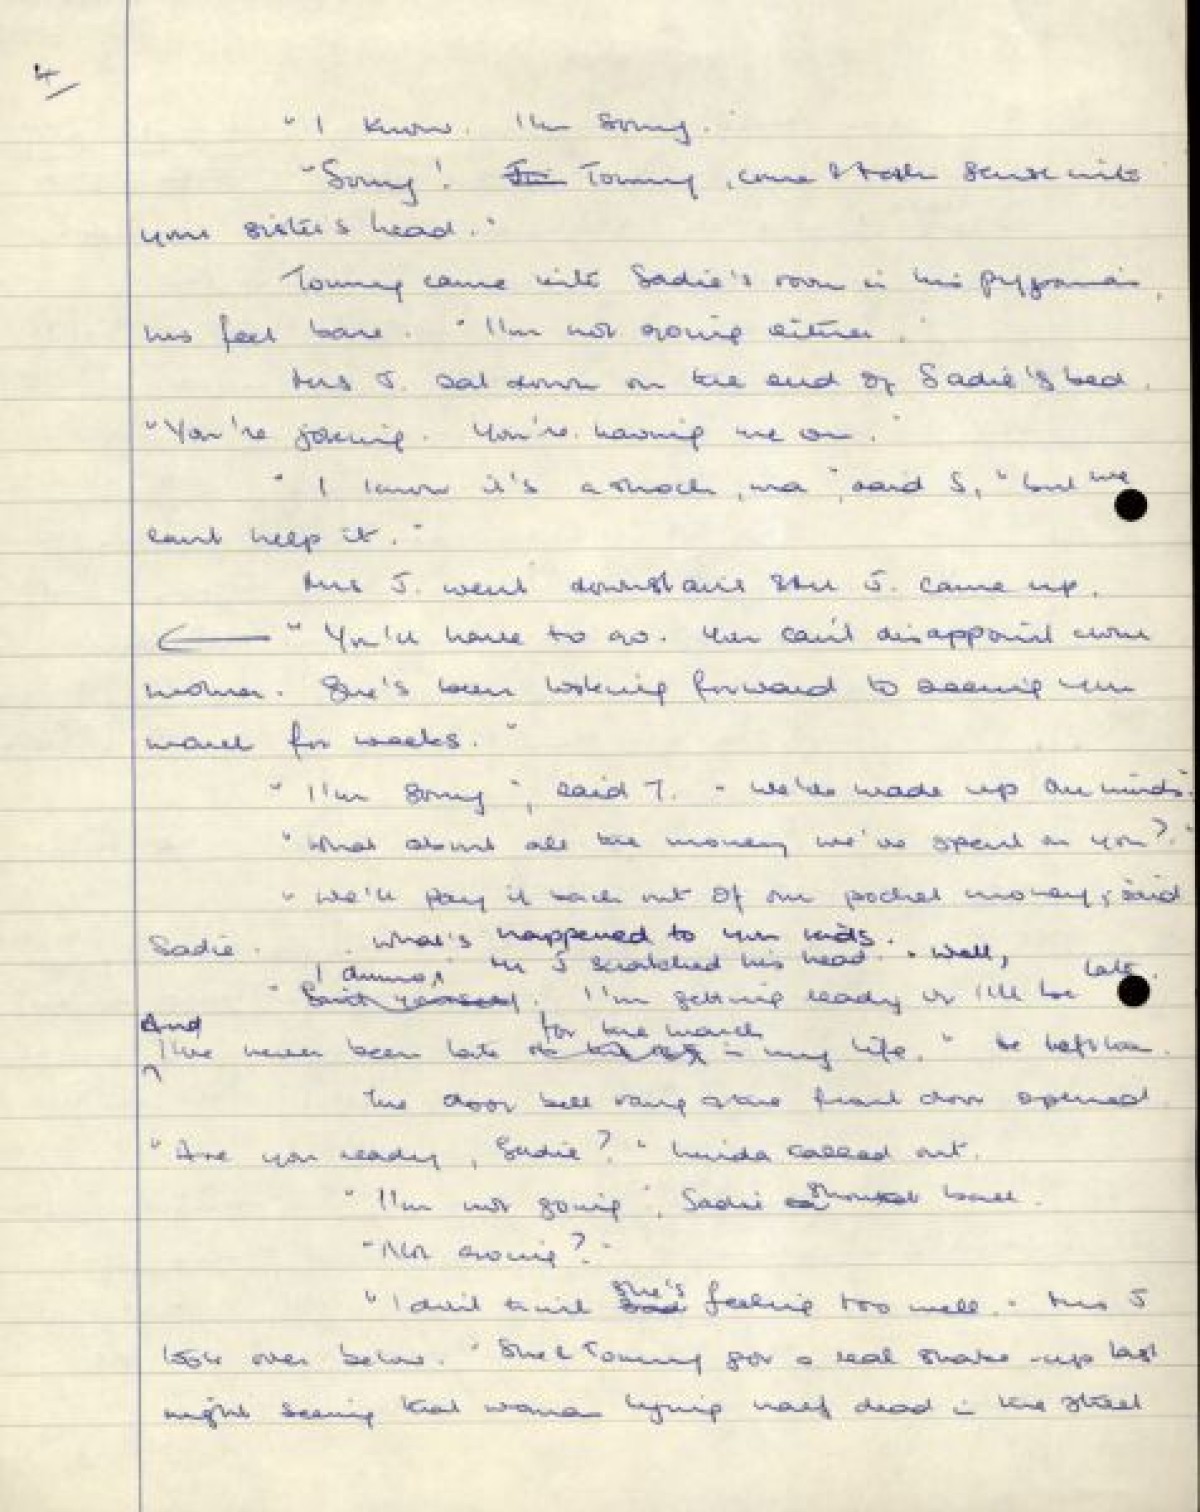 4
"I know. I'm sorry."
"Sorry! Tommy, come & talk sense into
your sister's head."
Tommy came into Sadie's room in his pyjamas,
his feet bare. "I'm not going either."
Mrs J. sat down on the end of Sadie's bed.
"You're joking. You're having me on."
"I know it's a shock, ma", said S, "but we
can't help it."
Mrs J. went downstairs & Mr J. came up.
"You'll have to go. You can't disappoint your
mother. She's been looking forward to seeing you
walk for weeks."
"I'm sorry", said T. "We've made up our minds."
"What about all the money we've spent on you?"
"We'll pay it back out of our pocket money, said
Sadie. What's happened to you kids.
I dunno," Mr J scratched his head. "Well, late.
I'm getting ready or I'll be
And for the march
I've never been late in my life." He left them.
The door bell rang & the front door opened.
"Are you ready, Sadie?" Linda called out.
"I'm not going", Sadie shouted back.
"Not going?"
"I don't think she's feeling too well." Mrs J
took over below. "She & Tommy got a real shake-up last
night seeing that woman lying half dead in the street